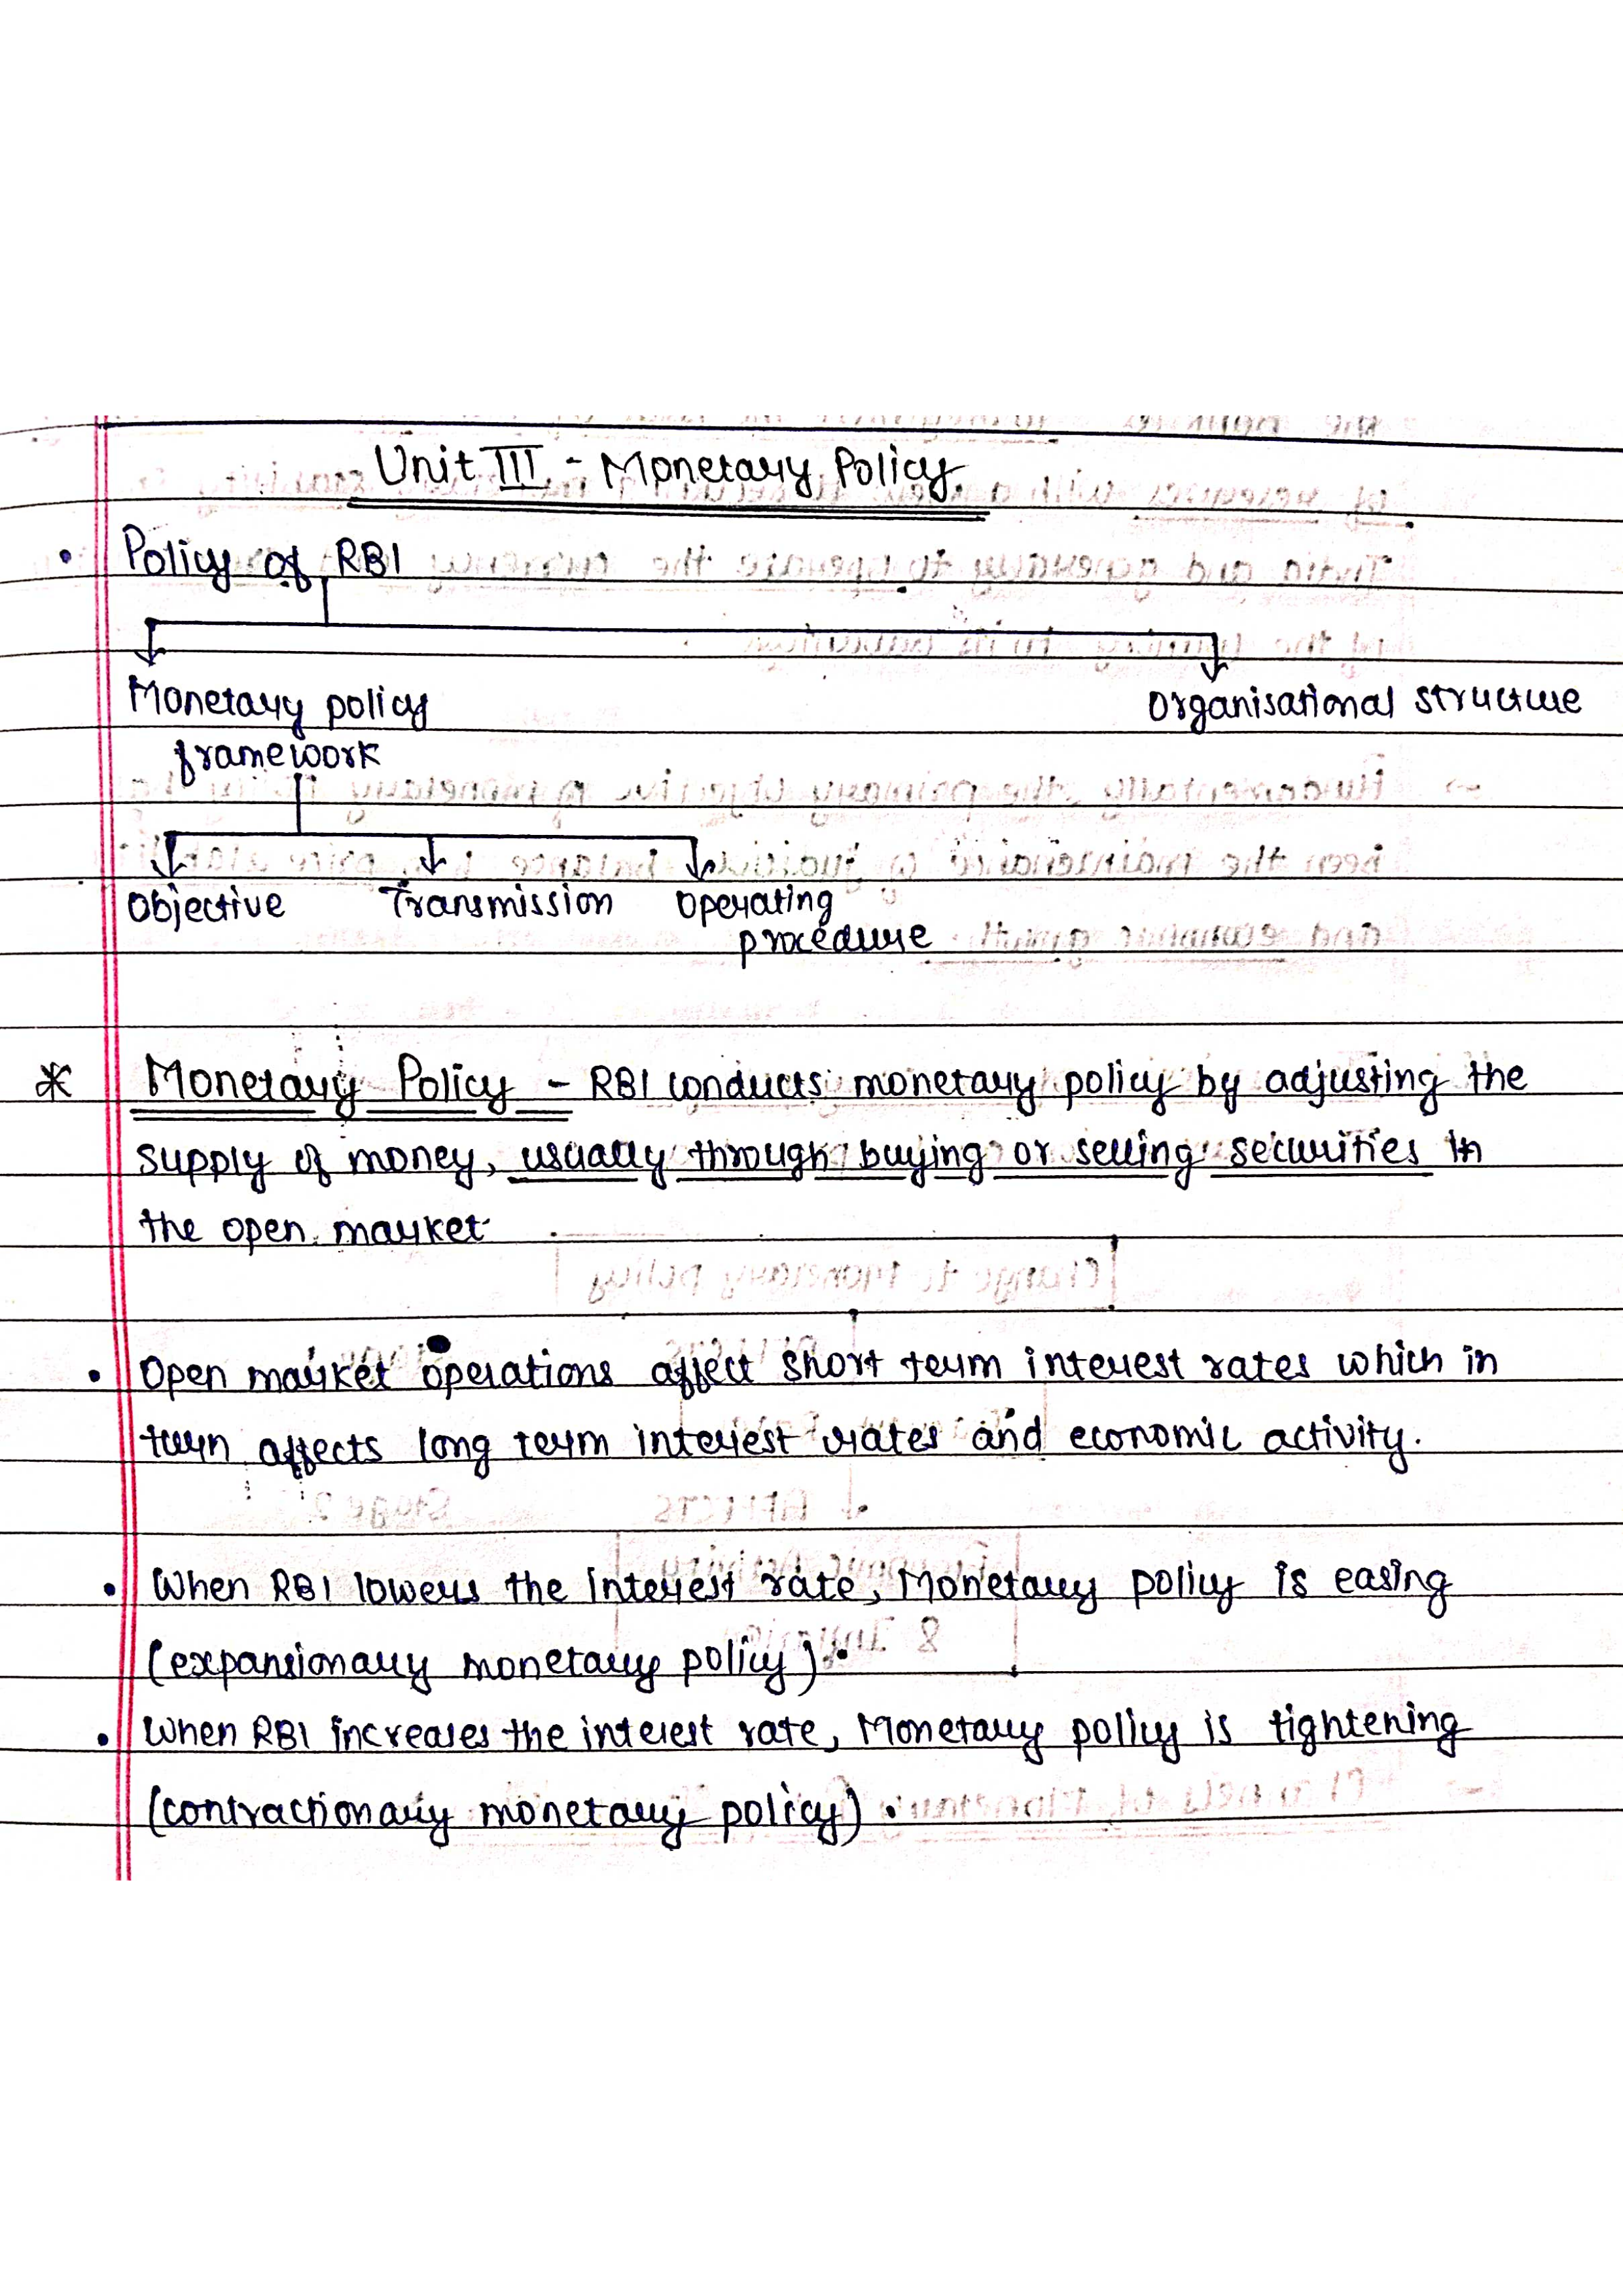 Unit III - Monetary Policy
• Policy of RBI
Monetary policy framework
Organisational structure
Objective
Transmission
Operating procedure
* Monetary Policy - RBI conducts monetary policy by adjusting the
supply of money, usually through buying or selling securities in
the open market.
• Open market operations affect short term interest rates which in
turn affects long term interest rates and economic activity.
• When RBI lowers the interest rate, Monetary policy is easing
(expansionary monetary policy).
• When RBI increases the interest rate, Monetary policy is tightening
(contractionary monetary policy).